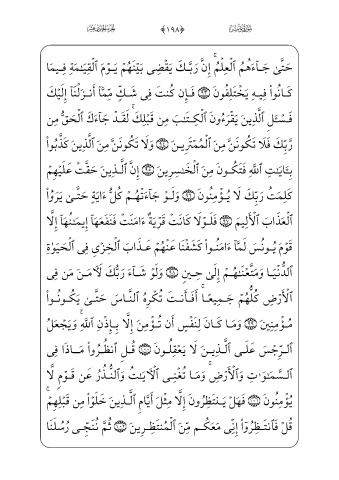 ﴿١٩٨﴾
حَتَّىٰ جَآءَهُمُ ٱلْعِلْمُ ۚ إِنَّ رَبَّكَ يَقْضِى بَيْنَهُمْ يَوْمَ ٱلْقِيَـٰمَةِ فِيمَا
كَانُوا۟ فِيهِ يَخْتَلِفُونَ ۝٩٣ فَإِن كُنتَ فِى شَكٍّ مِّمَّآ أَنزَلْنَآ إِلَيْكَ
فَسْـَٔلِ ٱلَّذِينَ يَقْرَءُونَ ٱلْكِتَـٰبَ مِن قَبْلِكَ ۚ لَقَدْ جَآءَكَ ٱلْحَقُّ مِن
رَّبِّكَ فَلَا تَكُونَنَّ مِنَ ٱلْمُمْتَرِينَ ۝٩٤ وَلَا تَكُونَنَّ مِنَ ٱلَّذِينَ كَذَّبُوا۟
بِـَٔايَـٰتِ ٱللَّهِ فَتَكُونَ مِنَ ٱلْخَـٰسِرِينَ ۝٩٥ إِنَّ ٱلَّذِينَ حَقَّتْ عَلَيْهِمْ
كَلِمَتُ رَبِّكَ لَا يُؤْمِنُونَ ۝٩٦ وَلَوْ جَآءَتْهُمْ كُلُّ ءَايَةٍ حَتَّىٰ يَرَوُا۟
ٱلْعَذَابَ ٱلْأَلِيمَ ۝٩٧ فَلَوْلَا كَانَتْ قَرْيَةٌ ءَامَنَتْ فَنَفَعَهَآ إِيمَـٰنُهَآ إِلَّا
قَوْمَ يُونُسَ لَمَّآ ءَامَنُوا۟ كَشَفْنَا عَنْهُمْ عَذَابَ ٱلْخِزْىِ فِى ٱلْحَيَوٰةِ
ٱلدُّنْيَا وَمَتَّعْنَـٰهُمْ إِلَىٰ حِينٍ ۝٩٨ وَلَوْ شَآءَ رَبُّكَ لَـَٔامَنَ مَن فِى
ٱلْأَرْضِ كُلُّهُمْ جَمِيعًا ۚ أَفَأَنتَ تُكْرِهُ ٱلنَّاسَ حَتَّىٰ يَكُونُوا۟
مُؤْمِنِينَ ۝٩٩ وَمَا كَانَ لِنَفْسٍ أَن تُؤْمِنَ إِلَّا بِإِذْنِ ٱللَّهِ ۚ وَيَجْعَلُ
ٱلرِّجْسَ عَلَى ٱلَّذِينَ لَا يَعْقِلُونَ ۝١٠٠ قُلِ ٱنظُرُوا۟ مَاذَا فِى
ٱلسَّمَـٰوَٰتِ وَٱلْأَرْضِ ۚ وَمَا تُغْنِى ٱلْـَٔايَـٰتُ وَٱلنُّذُرُ عَن قَوْمٍ لَّا
يُؤْمِنُونَ ۝١٠١ فَهَلْ يَنتَظِرُونَ إِلَّا مِثْلَ أَيَّامِ ٱلَّذِينَ خَلَوْا۟ مِن قَبْلِهِمْ ۚ
قُلْ فَٱنتَظِرُوٓا۟ إِنِّى مَعَكُم مِّنَ ٱلْمُنتَظِرِينَ ۝١٠٢ ثُمَّ نُنَجِّى رُسُلَنَا